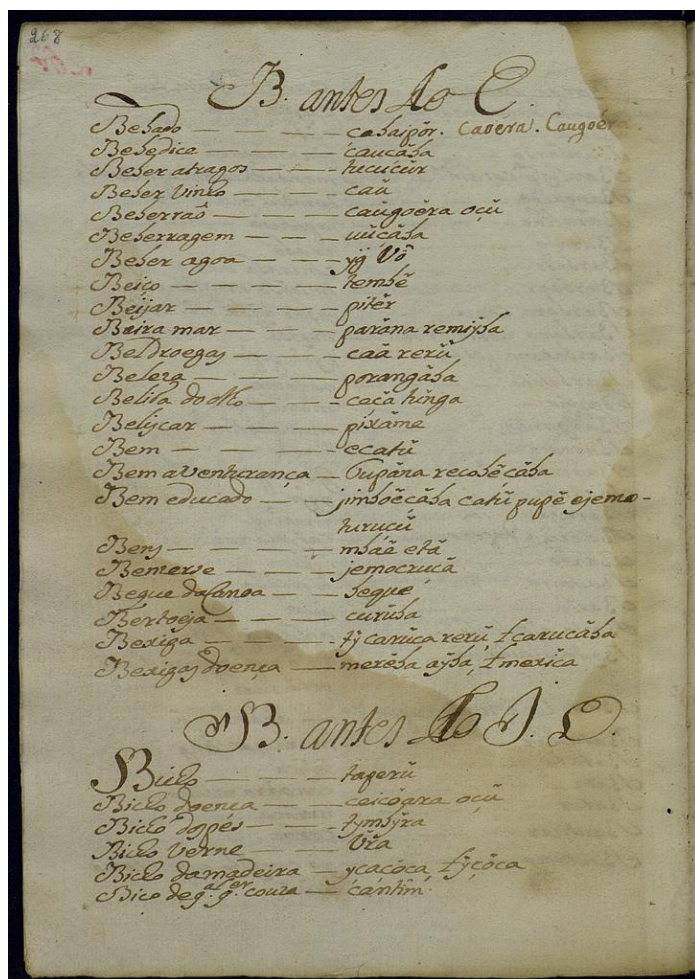 268
B. antes do E.
Bebado — — — — cabaipõr. Caoéra. Caugoéra
Bebedice — — — — caucãba
Beber atragos — — — tucucũr
Beber vinho — — — caũ
Beberraõ — — — — caũgoẽra ocũ
Beberragem — — — uũcãba
Beber agoa — — — yg Võ
Beiço — — — — tembẽ
Beijar — — — — pitẽr
Beira mar — — — parãna remijba
Beldroegas — — — caã rerũ
Beleza — — — — porangãba
Belida do olho — — ceçã tinga
Beliscar — — — — pixãme
Bem — — — — ecatũ
Bem aventurança — Tupãna recobẽcãba
Bem educado — — jimboẽçãba catũ pupẽ ejemo-
turuçũ
Bens — — — — mbãẽ etã
Benzerse — — — jemocruçã
Beque da Canoa — — beque
Bertoeja — — — curũba
Bexiga — — — — tỹ carũca rerũ, t carucãba
Bexigas doença — merẽba aỹba, t merẽca
B. antes do I. E.
Bicho — — — — tapurũ
Bicho doença — — ceicõara ocũ
Bicho dopés — — tỹmbỹra
Bicho verne — — Vra
Bicho damadeira — ycaçõca, t ỹçõca
Bico de q.ᵃ q.ᵉʳ couza — cantim